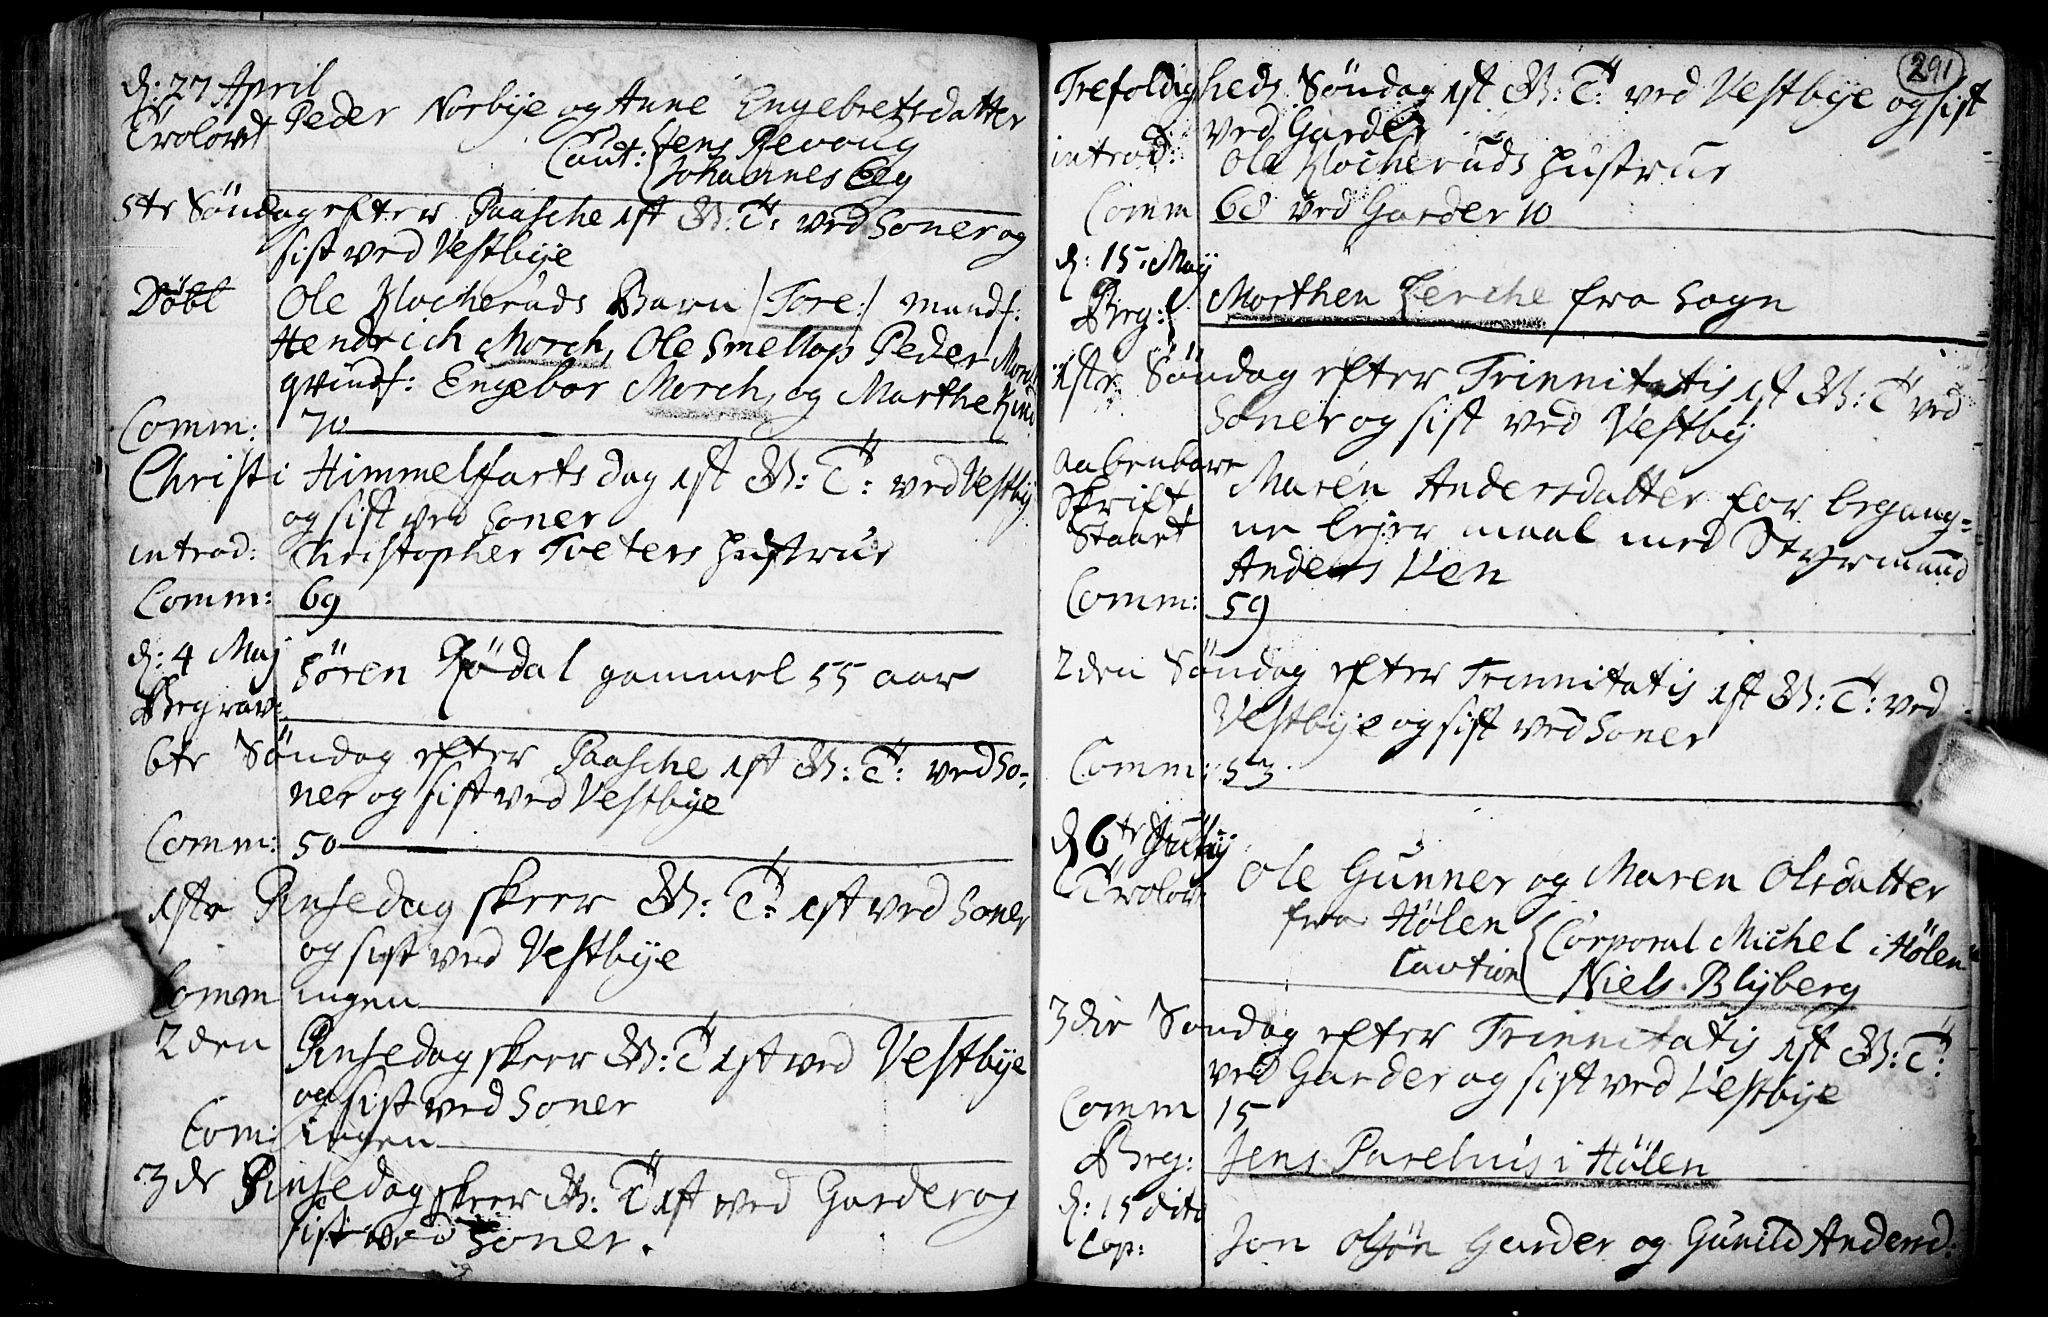 d: 27 April
Trolovet Peder Norbye og Anne Engebretsdatter
Caut: Jens Revoug
Johannes Eeg
5te Søndag efter Paasche 1st G: T: ved Soner og
sist ved Vestbye
Døbt Ole Klocheruds Barn /: Tore :/ mandf:
Hendrich Morch, Ole Smeltop Peder Morch
qvindf: Engebor Morch, og Marthe
Comm: 70
Christi Himmelfarts dag 1st G: T: ved Vestby
og sist ved Soner
introd: Christopher Tveters Hustrue
Comm: 69
d: 4 Maj
Begrav: Sören Rödal gammel 55 aar
6te Søndag efter Paasche 1st G: T: ved So-
ner og sist ved Vestbye
Comm: 50
1ste Pinsedag skeer G: T: 1st ved Soner
og sist ved Vestbye
Comm ingen
2den Pinsedag skeer G: T: 1st ved Vestbye
og sist ved Soner
Com: ingen
3de Pinsedag skeer G: T: 1st ved Garder og
sist ved Soner.
291
Trefoldigheds Söndag 1st G: T: ved Vestbye og sist
ved Garder
introd: Ole Klocheruds Hustrue
Comm 68 ved Garder 10
d: 15 Maij
Beg: Morthen Lerche fra Sogn
1ste Söndag efter Trinnitatis 1st G: T: ved
Soner og sist ved Vestby
Aabenbare Maren Andersdatter for begang-
Skrift ne lejermaal med Styrmand
Staaet Anders Ven
Comm: 59
2den Søndag efter Trinnitatis 1st G: T: ved
Vestbye og sist ved Soner
Comm: 53
d 6te Julij
Trolov: Ole Gunner og Maren Olsdatter
fra Hølen Corporal Michel i Hølen
Caution Niels Blyberg
3die Søndag efter Trinnitatis 1st G: T:
ved Garder og sist ved Vestbye
Comm 15
Beg: Jens Parelius i Hølen
d: 15 dito
Cop: Jon Olsøn Garder og Gunild Andersd: